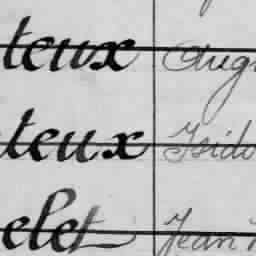 teux Aug
teux Isido
elet Jean